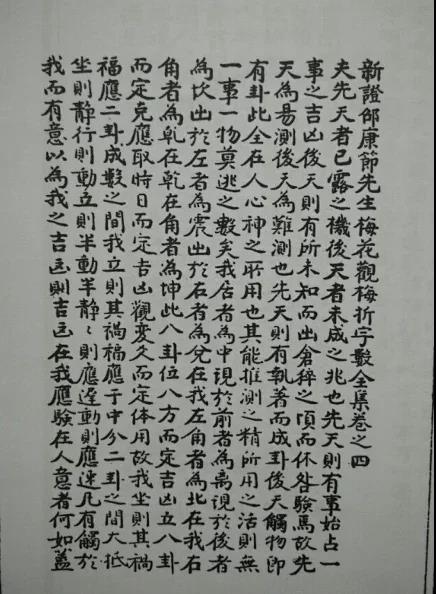 新證邵康節先生梅花觀梅拆字數全集卷之四
夫先天者已露之機後天者未成之兆也先天則有事始占一
事之吉凶後天則有所未知而出倉猝之頃而休咎驗焉故先
天為易測後天為難測也先天則有執著而成卦後天觸物即
有卦此全在人心神之所用也其能推測之精所用之活則無
一事一物莫逃之數矣我居者為中現於前者為离現於後者
為坎出於左者為震出於右者為兌在我左角者為北在我右
角者為乹在乹在角者為坤此八卦位八方而定吉凶立八卦
而定克應取時日而定吉凶觀変爻而定体用故我坐則其禍
福應二卦成數之間我立則其禍福應于中分二卦之間大抵
坐則静行則動立則半動半静〻則應遅動則應速凡有觸於
我而有意以為我之吉凶則吉凶在我應験在人意者何如蓋